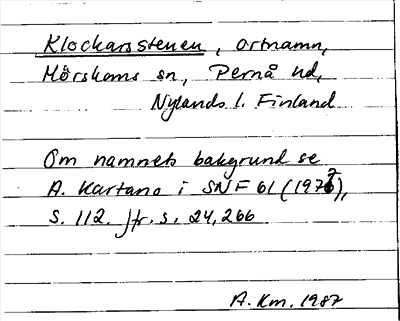 Klockarsstenen, ortnamn,
Mörskoms sn, Pernå hd,
Nylands l. Finland
Om namnets bakgrund se
A. Kartano i SNF 61 (1977),
s. 112. Jfr. s. 24, 266
A. Km. 1987